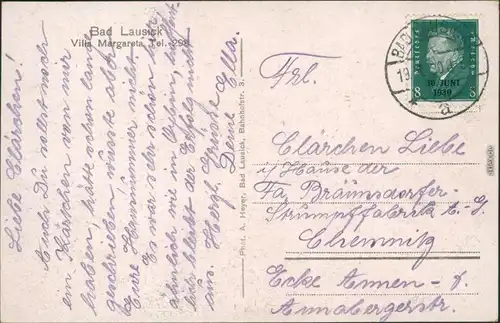 Bad Lausick
Villa Margareta, Tel. 298
Liebe Clärchen!
Auch Du sollst noch
ein Kärtchen von mir
haben, hätte schon lange
geschrieben, wusste aber
Eure Hausnummer nicht.
Es war sehr schön hier,
ähnlich wie in
bleibt der Erfolg nicht
aus. Herzl. Grüsse
Deine Ella.
Phot. A. Heyer, Bad Lausick, Bahnhofstr. 3.
BAD
19
a
10. JUNI
1930
8 8
Frl.
Clärchen Liebe
i/Hause der
Fa Bräunsdorfer-
Strumpffabrik A.-G.
Chemnitz
Ecke Annen- u.
Annabergerstr.